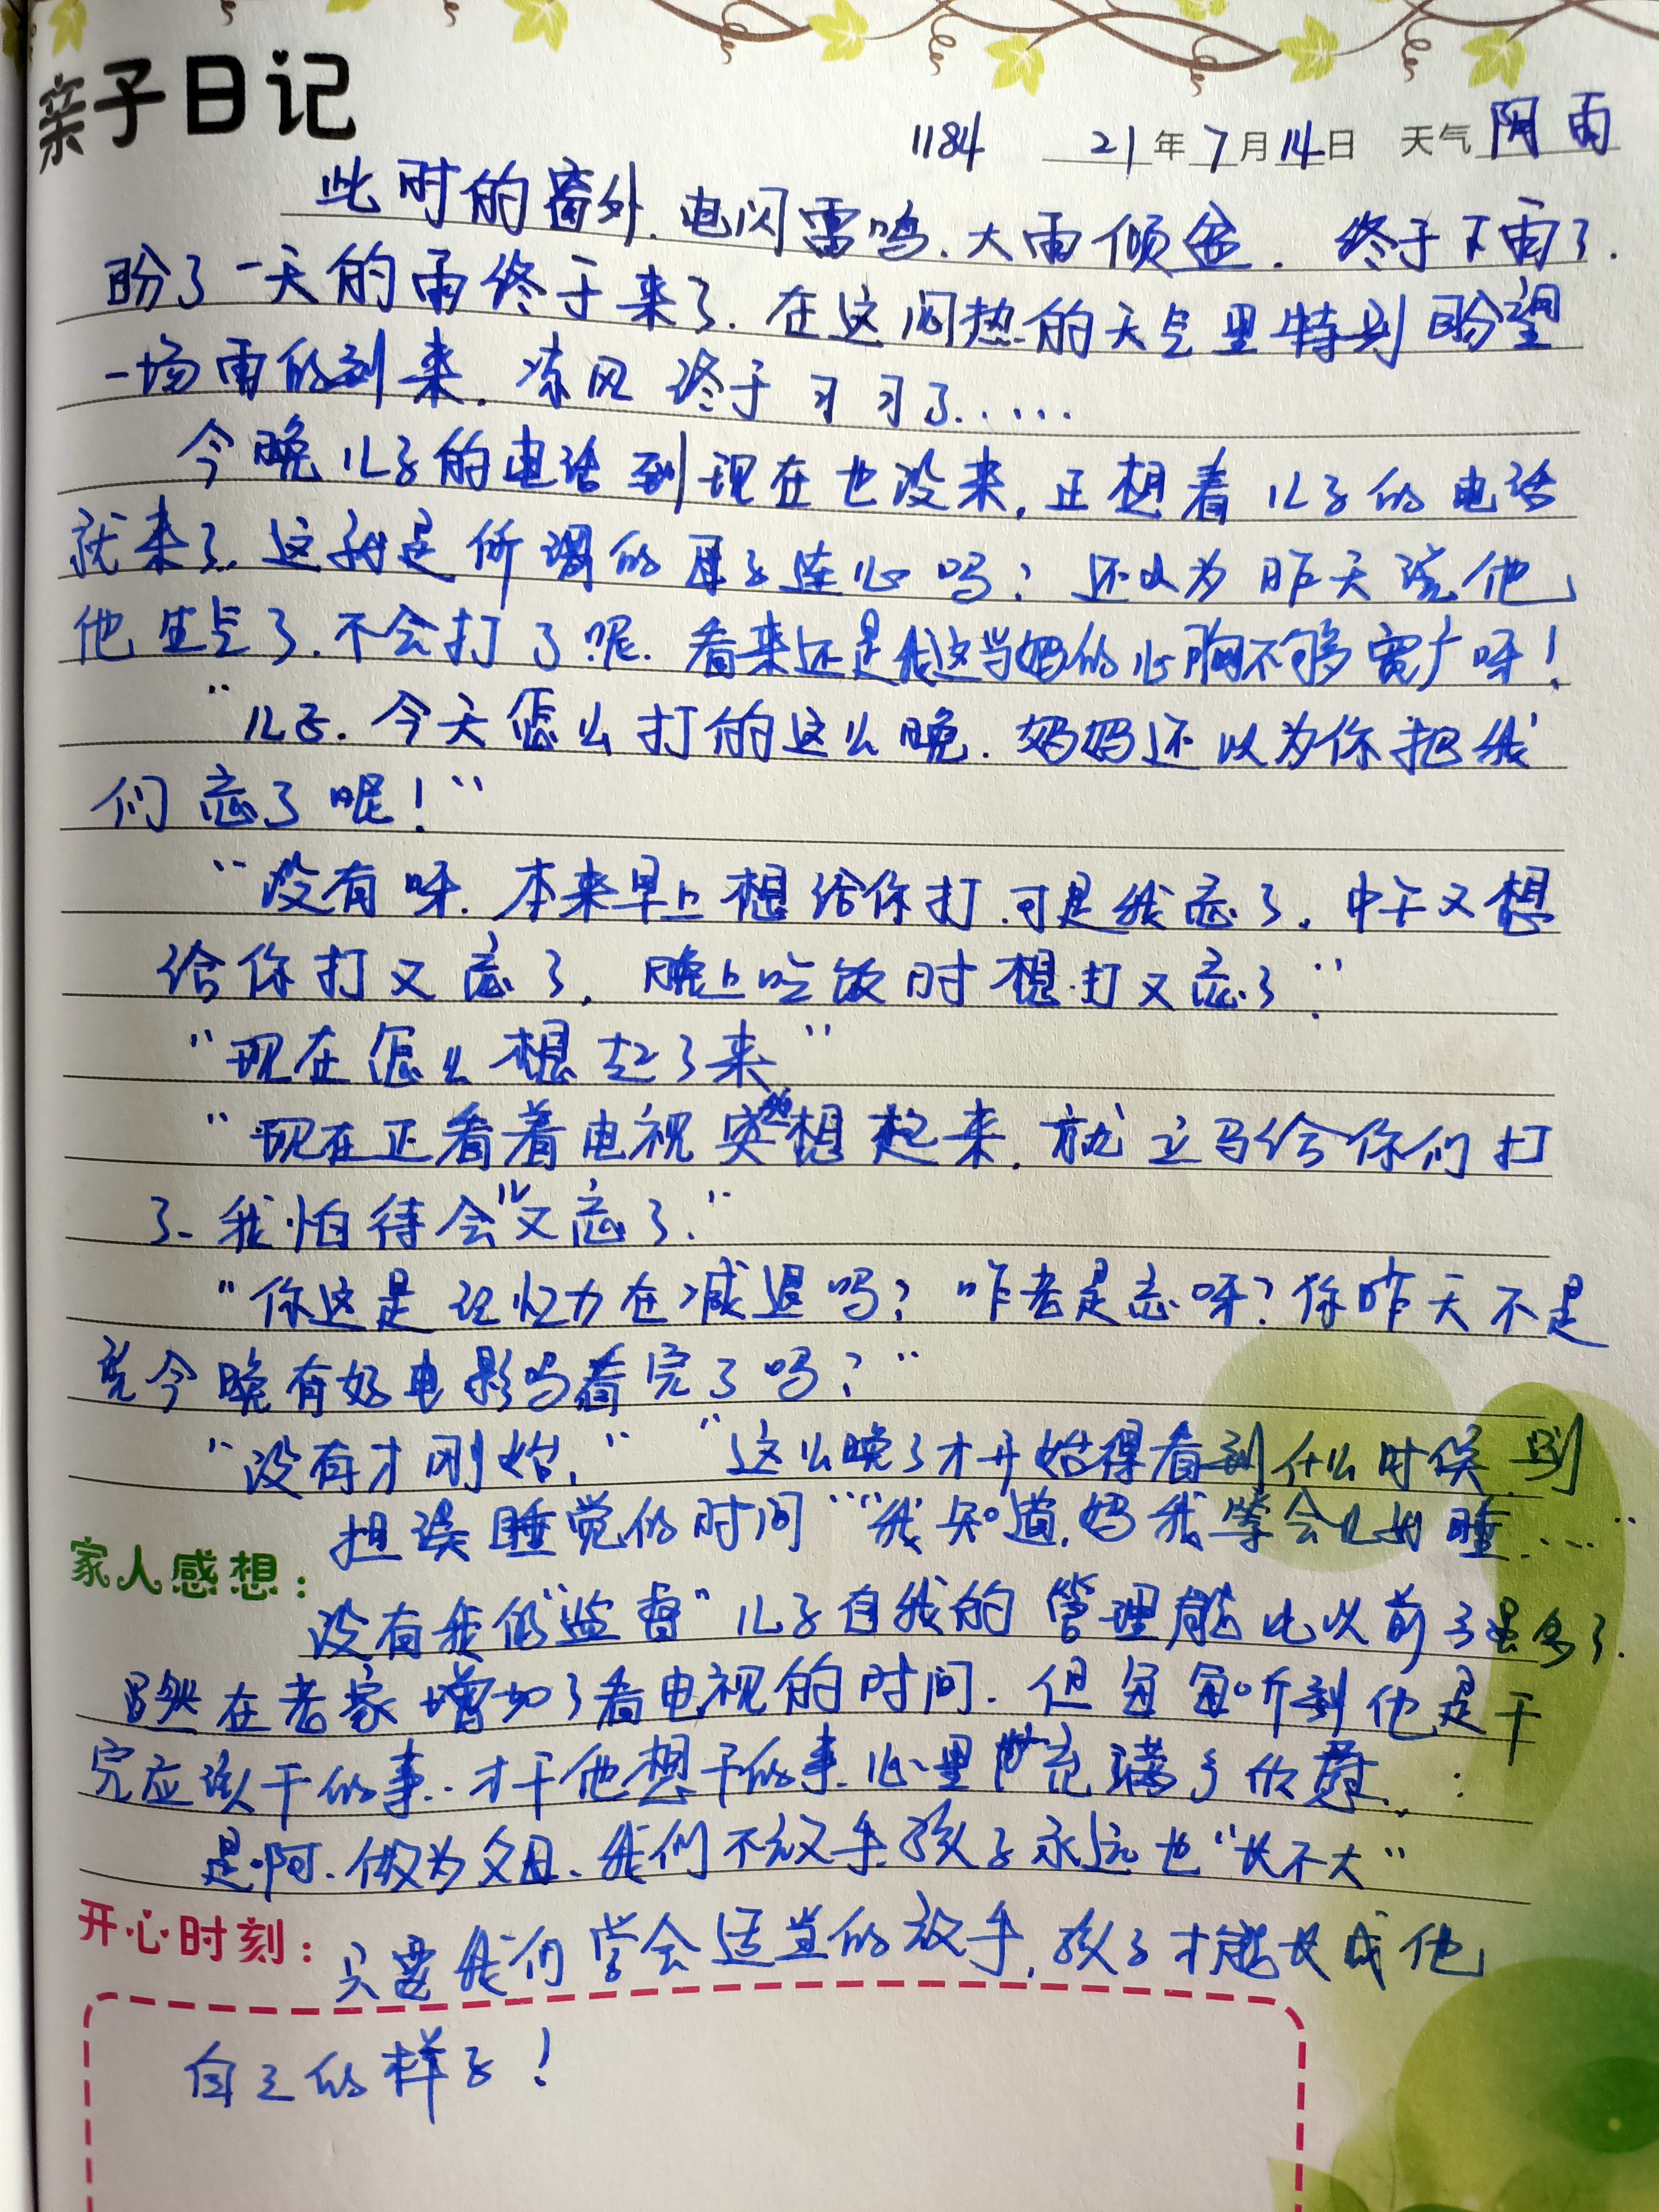 亲子日记
1184 21年7月14日 天气 阴雨
此时的窗外.电闪雷鸣.大雨倾盆. 终于下雨了.
盼了一天的雨终于来了.在这闷热的天气里特别盼望
一场雨的到来.凉风终于习习了.....
今晚儿子的电话到现在也没来,正想着儿子的电话
就来了.这就是所谓的母子连心吗?还以为昨天说他
他生气了.不会打了呢.看来还是我这当妈的心胸不够宽广呀!
"儿子.今天怎么打的这么晚.妈妈还以为你把我
们忘了呢!"
"没有呀.本来早上想给你打.可是我忘了.中午又想
给你打又忘了,晚上吃饭时想打又忘了."
"现在怎么想起了来"
"现在正看着电视突然想起来,就立马给你们打
了.我怕待会儿又忘了."
"你这是记忆力在减退吗?咋老是忘呀?你昨天不是
说今晚有好电影吗看完了吗?"
"没有才刚始." "这么晚了才开始得看到什么时候.别
担误睡觉的时间""我知道.妈我等会儿就睡....."
家人感想:
没有我的"监督"儿子自我的管理能比以前了强多了.
虽然在老家增加了看电视的时间.但每每听到他是干
完应该干的事..才干他想干的事.心里充满了欣慰..
是啊.做为父母.我们不放手.孩子永远也"长不大"
开心时刻:
只要我们学会适当的放手,孩子才能长成他
自己的样子!